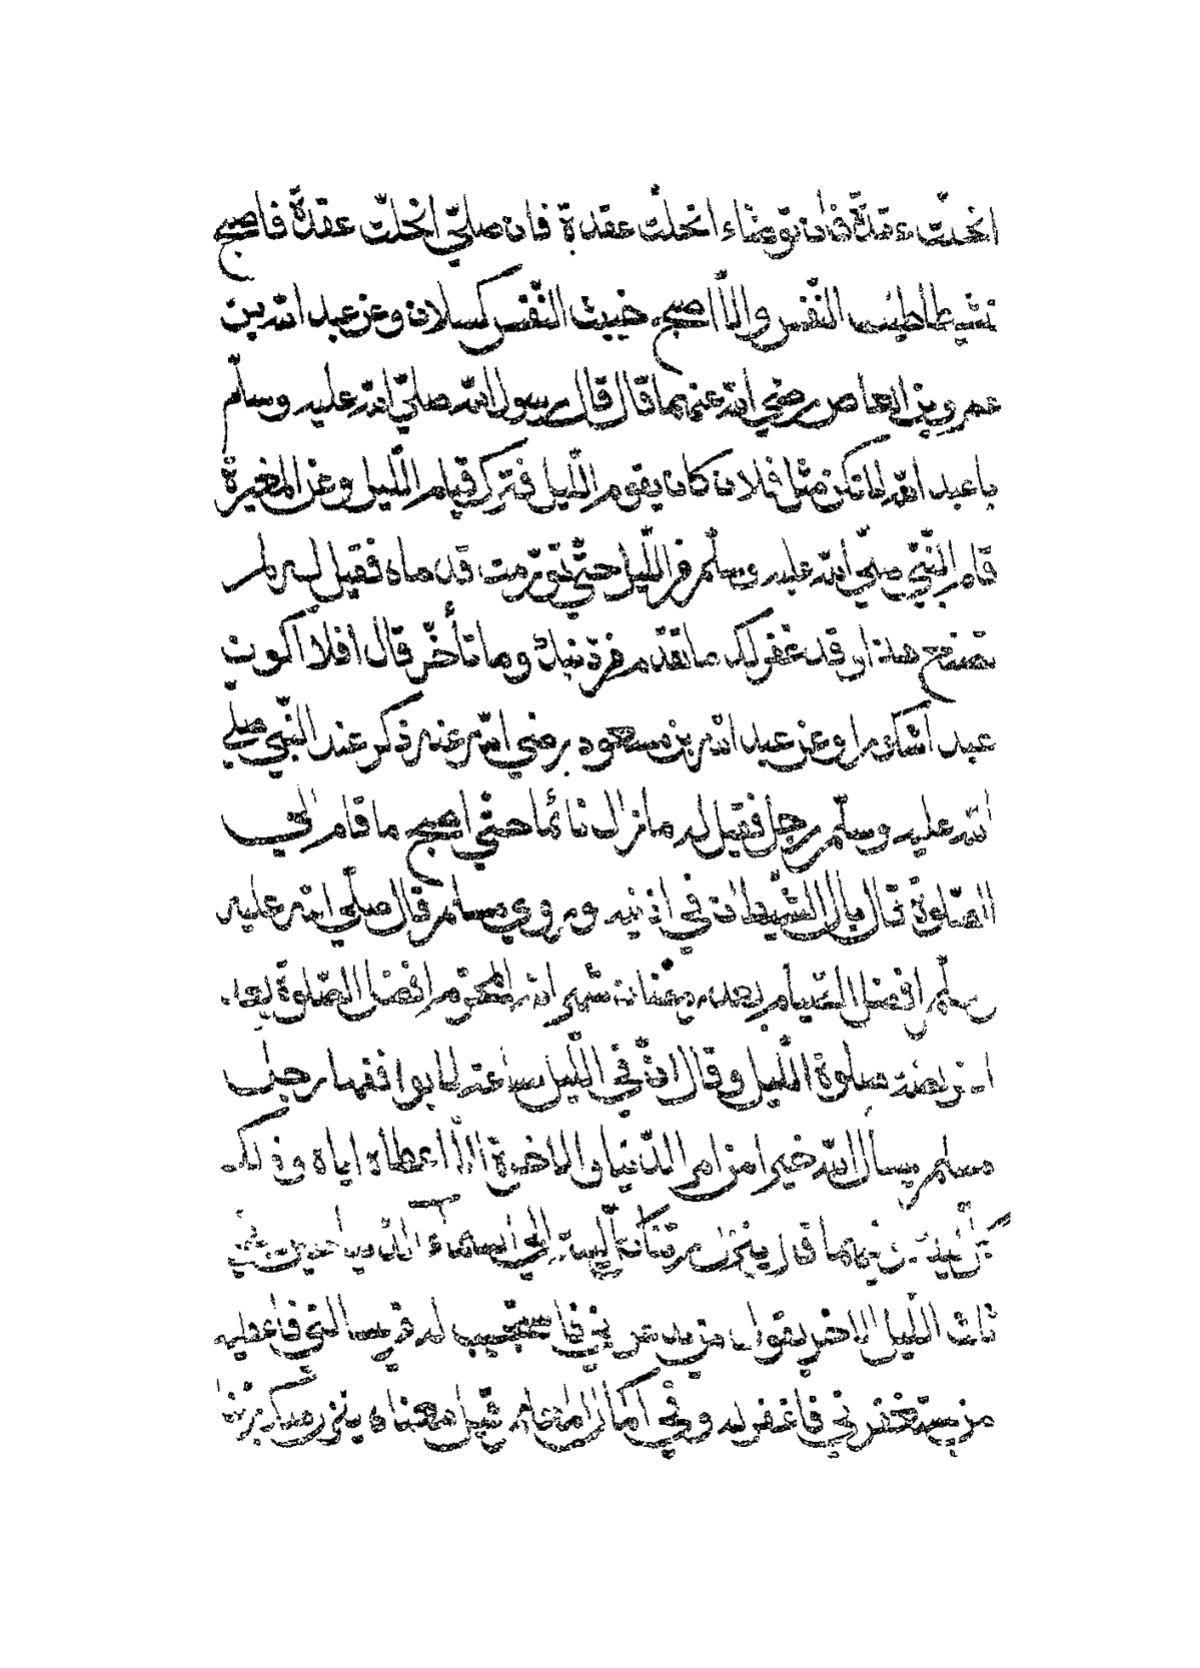 انحلّت عقدة فان توضّاء انحلّت عقدة فان صلّي انحلّت عقدة فاصبح
نشيطا طيّب النّفس والّا اصبح خبيث النّفس كسلان وعن عبد الله بن
عمرو بن العاص رضي الله عنهما قال قال رسول الله صلّي الله عليه وسلّم
يا عبد الله لا تكن مثل فلان كان يقوم اللّيل فترك قيام اللّيل وعن المغيرة
قام النّبيّ صلّي الله عليه وسلّم من اللّيل حتّي تورّمت قدماه فقيل له لم
تصنع هذا وقد غفر لك ما تقدّم من ذنبك وما تأخّر قال افلا اكون
عبدا شكورا وعن عبد الله بن مسعود رضي الله عنه ذكر عند النّبي صلّي
الله عليه وسلّم رجل فقيل له ما زال نائما حتّي اصبح ما قام الي
الصّلوة قال بال الشّيطان في اذنيه وروي مسلم قال صلّي الله عليه
وسلّم افضل الصّيام بعد رمضان شهر الله المحرّم افضل الصّلوة بعد
الفريضة صلوة اللّيل وقال انّ في اللّيل ساعة لا يوافقها رجل
مسلم يسأل الله خيرا من امر الدّنيا والاخرة الّا اعطاه اياه وذلك
كلّ ليلة قال ينزل ربّنا كلّ ليلة الي السماء الدّنيا حين يبقي
ثلث اللّيل الاخر يقول من يدعوني فاستجيب له من يسالني فاعطيه
من يستغفرني فاغفر له وفي قيل معناه ينزل